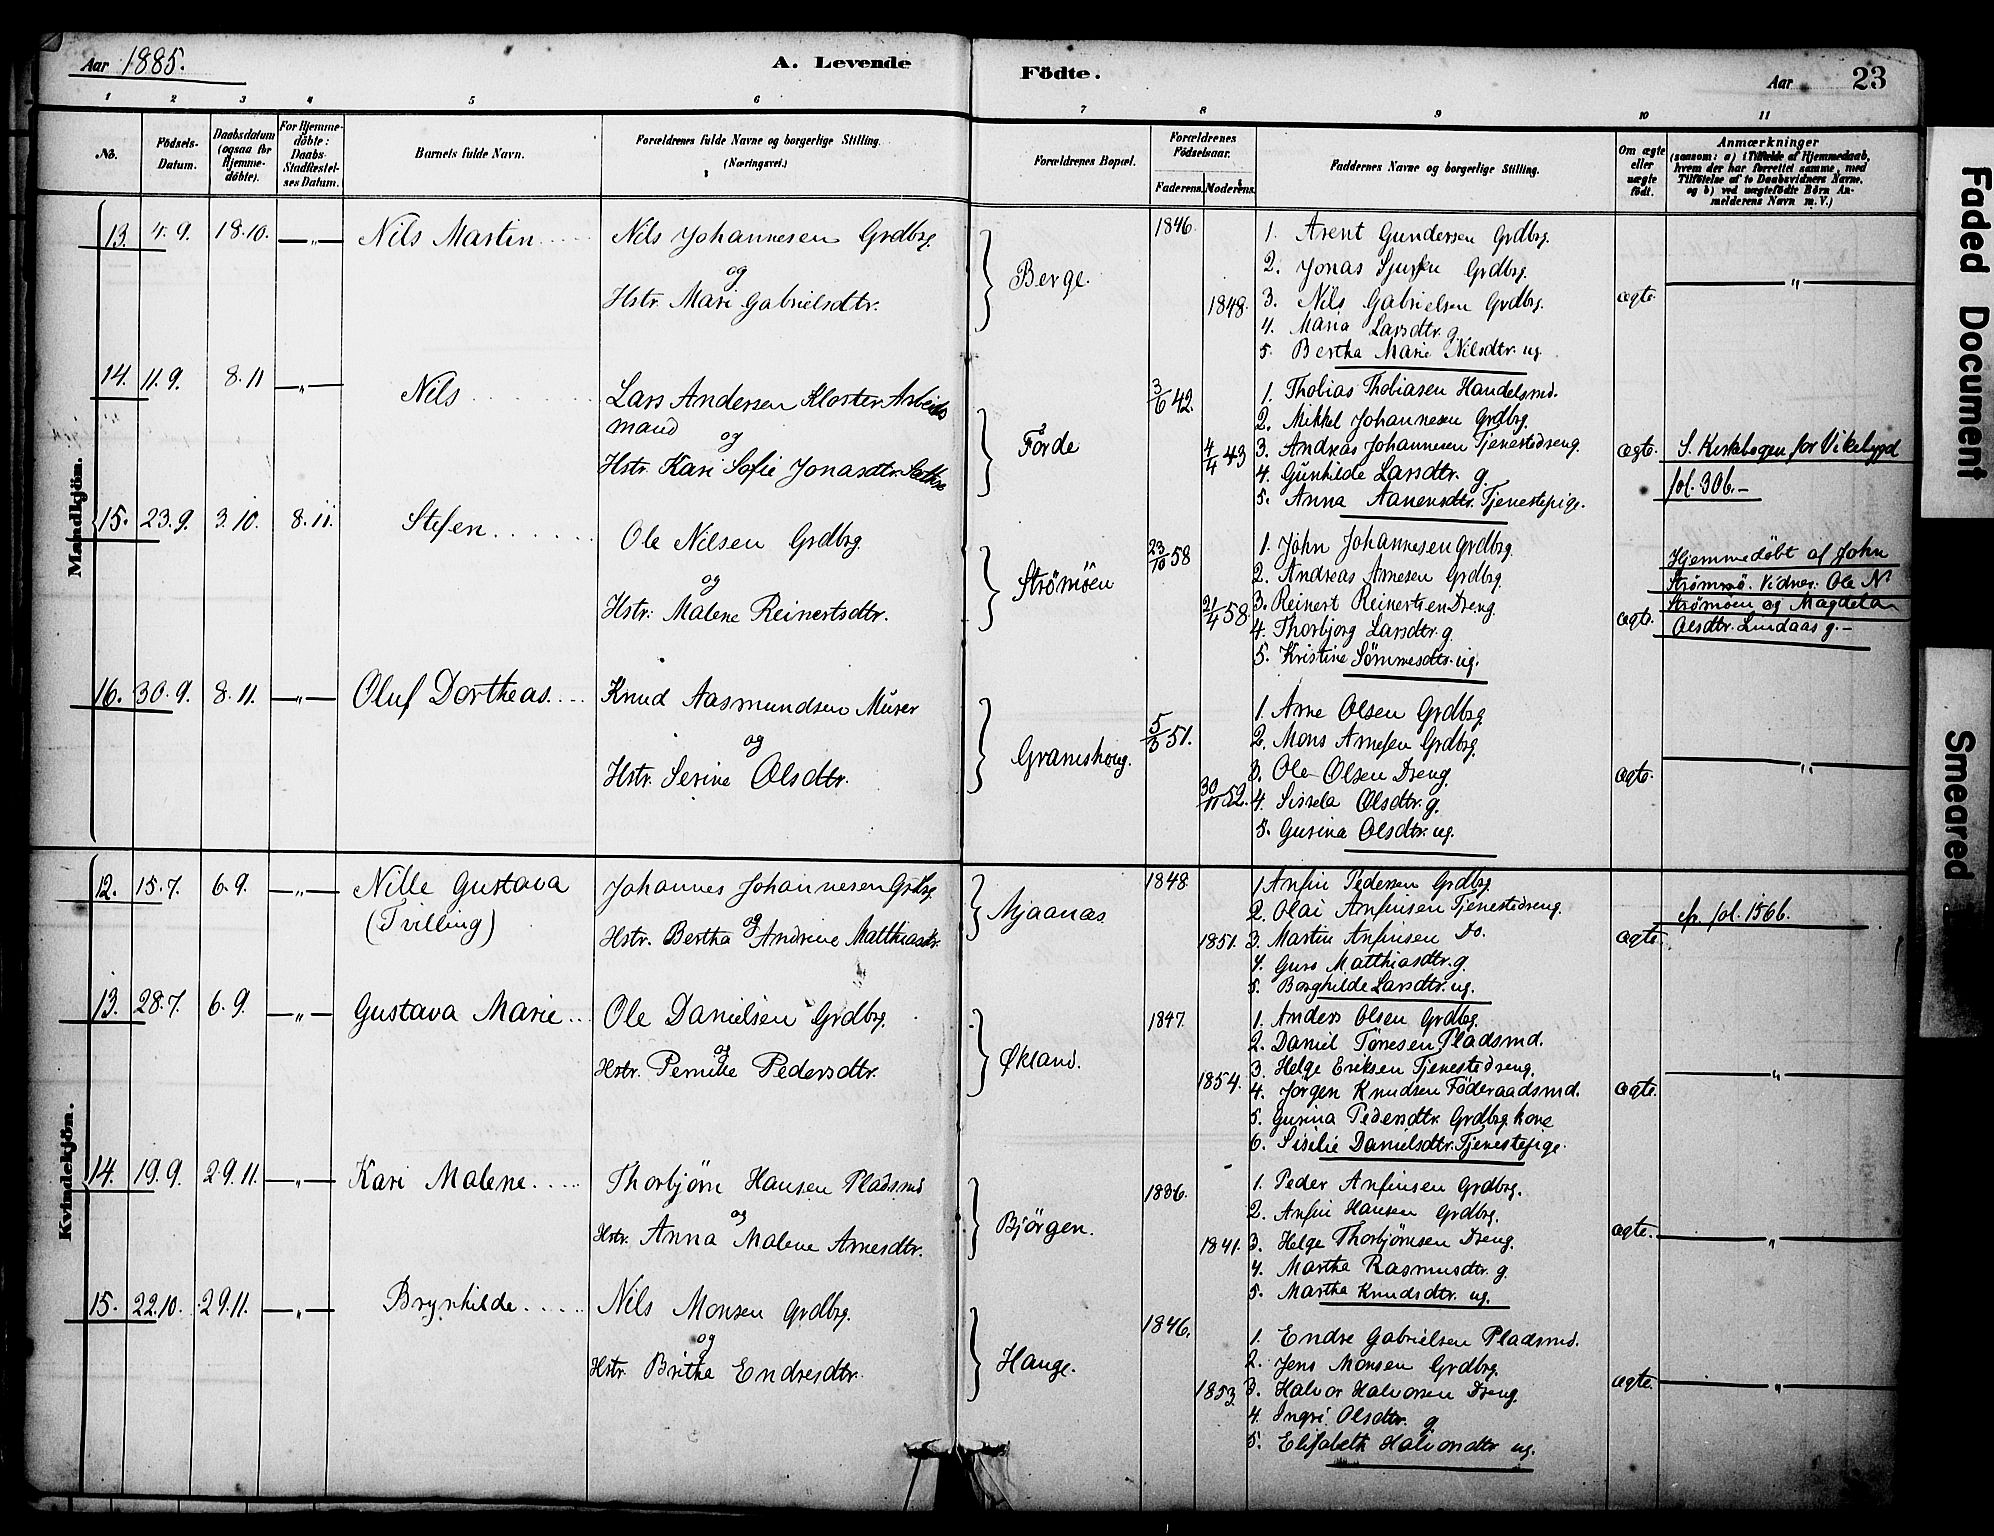 Aar 1885.
A. Levende Födte.
Aar 23
1 2 3 4 5 6 7 8 9 10 11
No.
Födsels-
Datum.
Daabsdatum
(ogsaa for
Hjemme-
döbte).
For Hjemme-
döbte:
Daabs-
Stadfæstel-
ses Datum.
Barnets fulde Navn.
Forældrenes fulde Navne og borgerlige Stilling.
(Næringsvei.)
Forældrenes Bopæl.
Forældrenes
Födselsaar.
Faderens. Moderens.
Faddernes Navne og borgerlige Stilling.
Om ægte
eller
uægte
födt.
Anmærkninger
(saasom: a) i Tilfælde af Hjemmedaab,
hvem der har forrettet samme, med
Tilföielse af to Daabsvidners Navne,
og b) ved uægtefödte Börn An-
melderens Navn m. V.)
Mandkjön.
13. 4.9. 18.10. —„— Nils Martin
Nils Johannesen Grdbrg.
og
Hstr. Mari Gabrielsdtr.
Berge.
1846.
1848.
1. Arent Gundersen Grdbrg.
2. Jonas Grdbrg.
3. Nils Gabrielsen Grdbrg.
4. Maria Larsdtr. g
5. Bertha Marie Nilsdtr. ug.
ægte.
„
14. 11.9. 8.11 —„— Nils
Lars Andersen Kloster Arbeids
mand
og
Hstr. Kari Sofie Jonasdtr.
Förde
3/6 42.
4/4 43
1. Thobias Thobiasen Handelsmd.
2. Mikkel Johannesen Grdbrg.
3. Andreas Johannesen Tjenestedreng.
4. Gunhilde Larsdtr. g.
5. Anna Aanensdtr. Tjenestepige.
ægte.
S. Kirkebogen for Vikebygd
fol. 306.—
15. 23.9. 3.10. 8.11. Stefen
Ole Nilsen Grdbrg.
og
Hstr. Malene Reinertsdtr.
Strömöen
23/10 58
21/4 58.
1. John Johannesen Grdbrg.
2. Andreas Arnesen Grdbrg.
3. Reinert Reinertsen Dreng.
4. Thorbjorg Larsdtr. g.
5. Kristine Sömmesdtr. ug.
ægte.
Hjemmedöbt af John
Strömsö. Vidner: Ole N.
Strömöen og Magdela
Olsdtr. Lindaas g.—
16. 30.9. 8.11. —„— Oluf Dortheas
Knud Aasmundsen Murer
og
Hstr. Serine Olsdtr.
Gramshoug.
5/3 51.
30/11 52.
1. Arne Olsen Grdbrg.
2. Mons Arnesen Grdbrg.
3. Ole Olsen Dreng.
4. Sissela Olsdtr. g.
5. Gurina Olsdtr. ug.
ægte.
„
Kvindekjön.
12. 15.7. 6.9. —„— Nille Gustava
(Tvilling)
Johannes Johannesen Grdbrg.
og
Hstr. Bertha Andrine Matthiasdtr.
Mjaanas
1848.
1851.
1. Anfin Pedersen Grdbrg.
2. Olai Anfinsen Tjenestedreng.
3. Martin Anfinsen Do.
4. Guro Matthiasdtr. g.
5. Borghilde Larsdtr. ug.
ægte.
cfr. fol. 156b.
13. 28.7. 6.9. —„— Gustava Marie
Ole Danielsen Grdbrg.
og
Hstr. Pernille Pedersdtr.
Økland.
1847.
1854.
1. Anders Olsen Grdbrg.
2. Daniel Tönesen Pladsmd.
3. Helge Eriksen Tjenestedreng.
4. Jörgen Knudsen Föderaadsmd.
5. Gurina Pedersdtr. Grdbrg. kone
6. Sisilie Danielsdtr. Tjenestepige.
ægte.
„
14. 19.9. 29.11. —„— Kari Malene
Thorbjörn Hansen Pladsmd
og
Hstr. Anna Malene Arnesdtr.
Bjørgen.
1836.
1841.
1. Peder Anfinsen Grdbrg.
2. Anfin Hansen Grdbrg.
3. Helge Thorbjörnsen Dreng.
4. Martha Rasmusdtr. g
5. Martha Knudsdtr. ug.
ægte.
„
15. 22.10. 29.11. —„— Brynhilde
Nils Monsen Grdbrg.
og
Hstr. Brithe Endresdtr.
Hauge.
1846.
1853
1. Endre Gabrielsen Pladsmd.
2. Jens Monsen Grdbrg.
3. Halvor Halvorsen Dreng.
4. Ingri Olsdtr. g
5. Elisabeth Halvorsdtr ug.
ægte.
„
Faded Document
Smeared